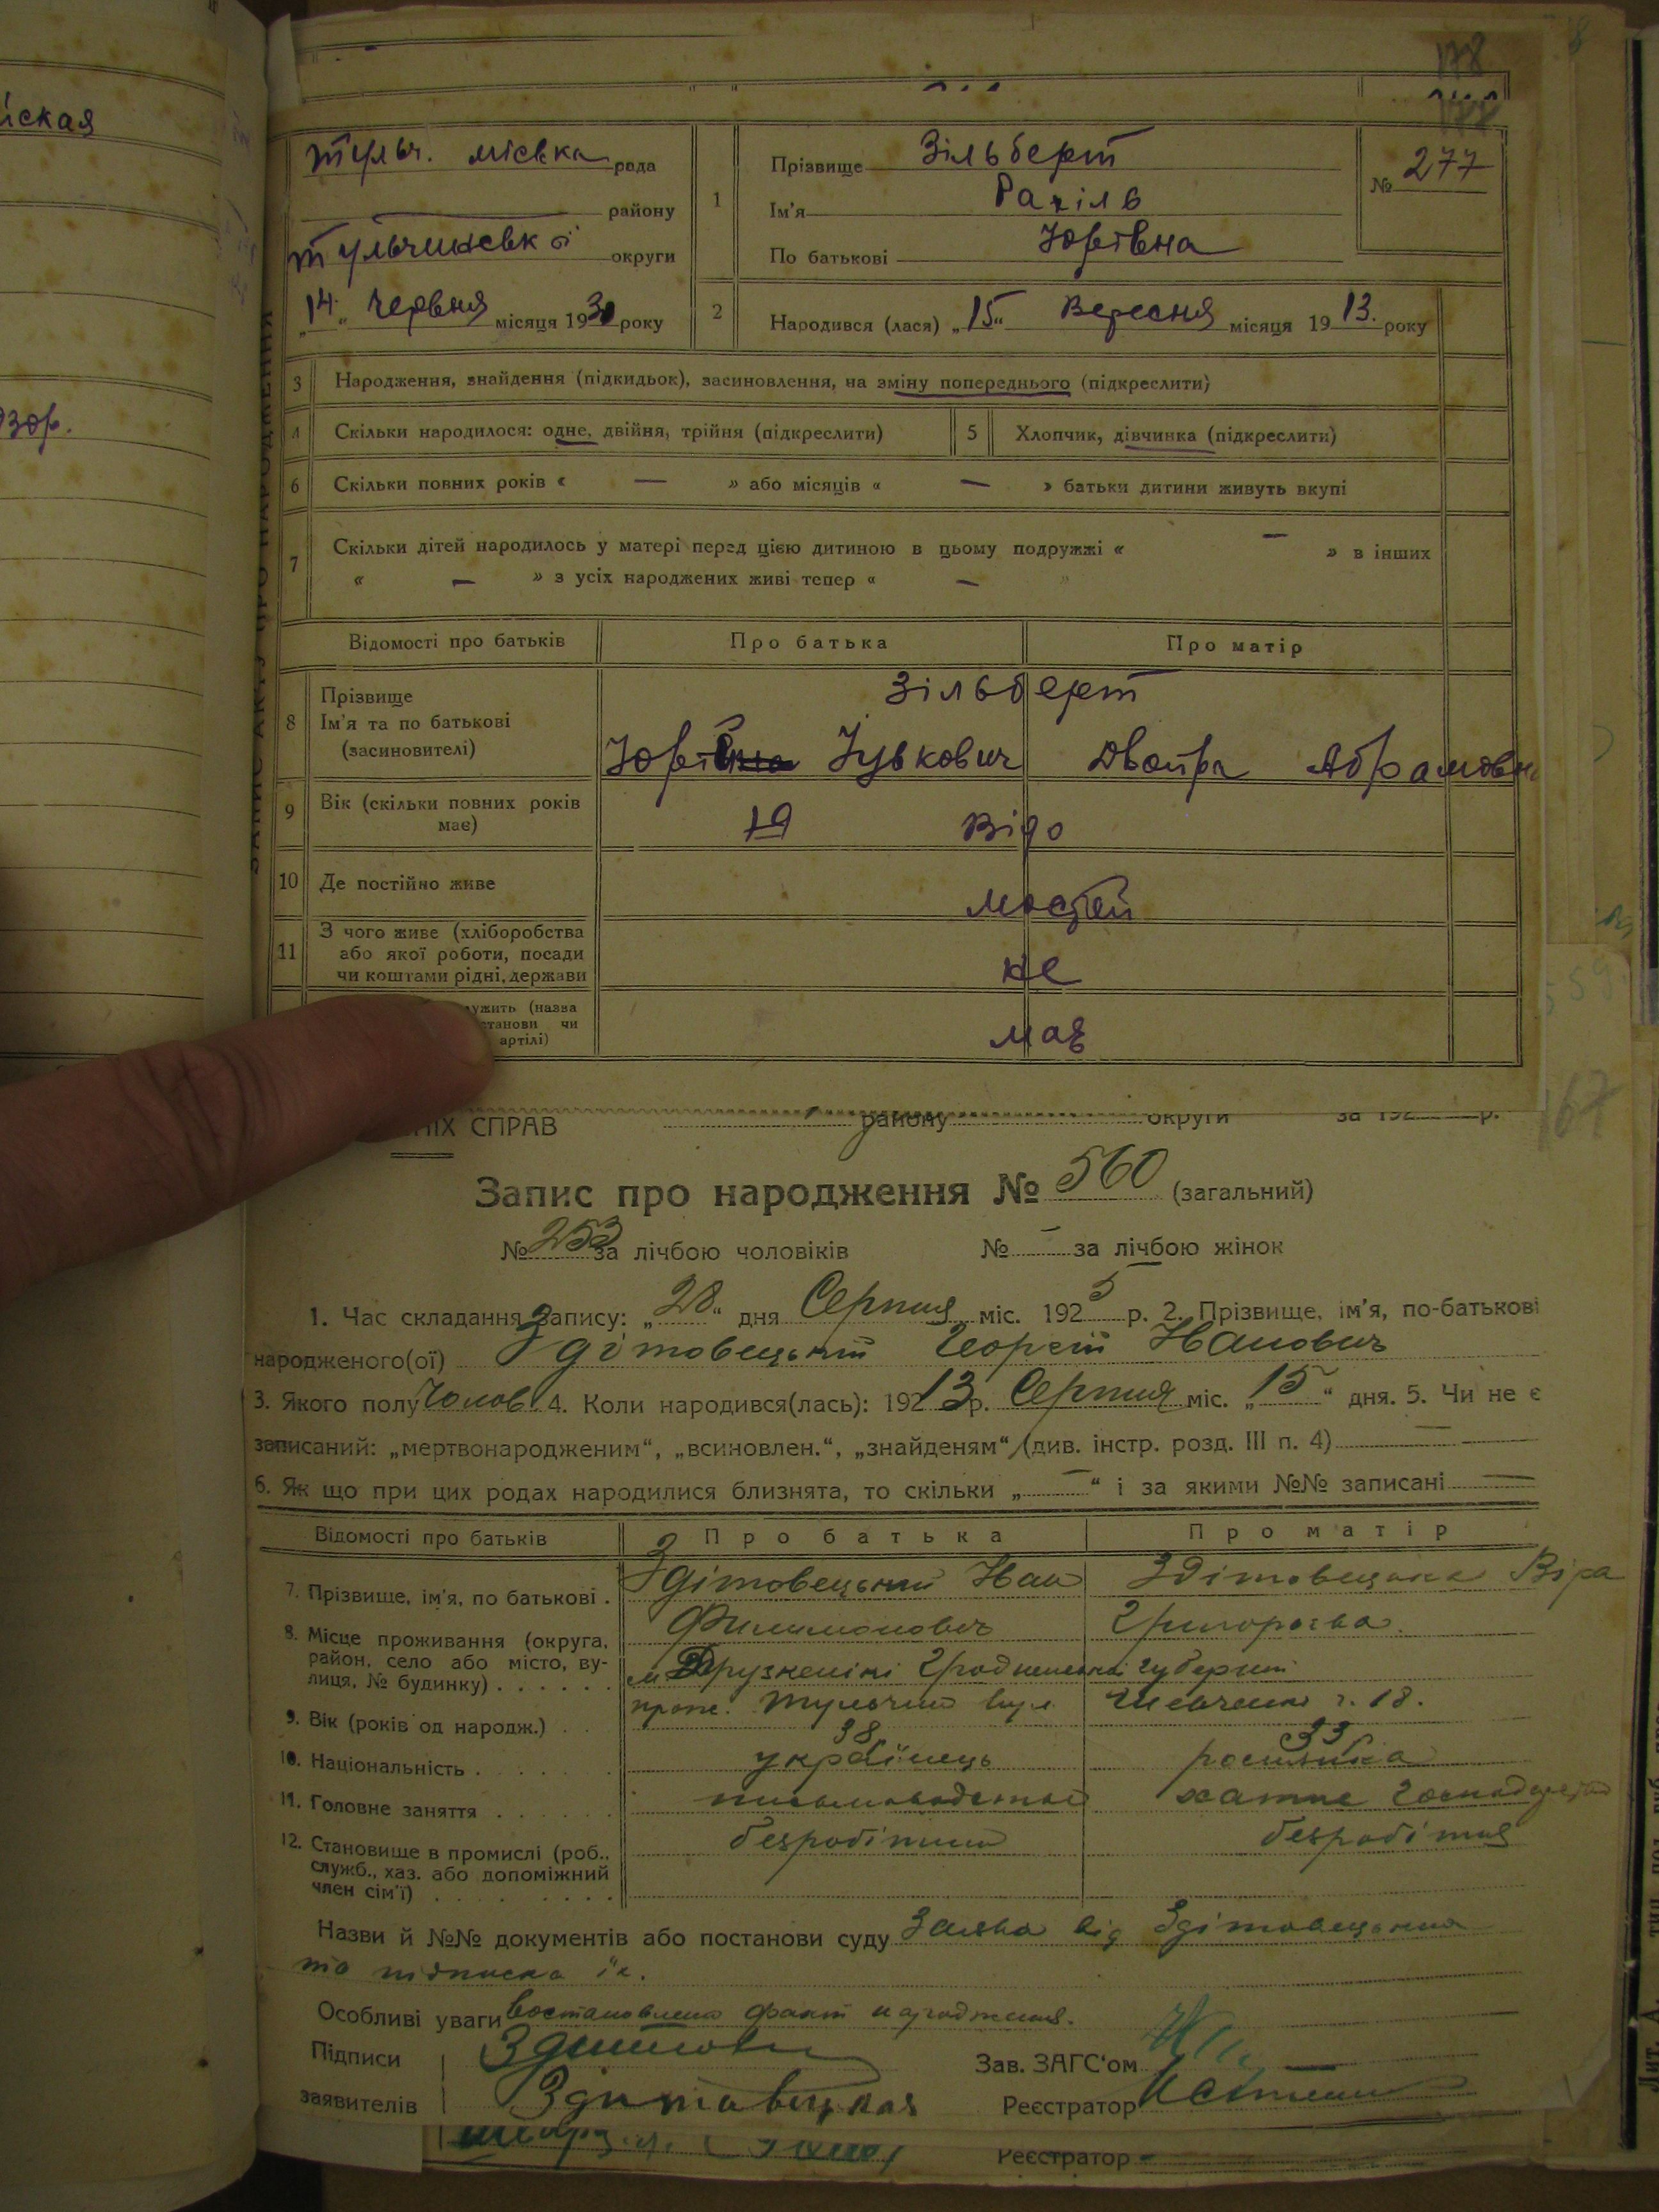 178
ская
зор.
ЗАПИС АКТУ ПРО НАРОДЖЕННЯ
Тульч. міська рада
району
Тульчинської округи
„14“ Червня місяця 1930 року
1
Прізвище Зільберт
Ім'я Рахіль
По батькові Юрівна
№ 277
2
Народився (лася) „15“ Вересня місяця 1913. року
3 Народження, знайдення (підкидьок), засиновлення, на зміну попереднього (підкреслити)
4 Скільки народилося: одне, двійня, трійня (підкреслити)
5 Хлопчик, дівчинка (підкреслити)
6 Скільки повних років « — » або місяців « — » батьки дитини живуть вкупі
7 Скільки дітей народилось у матері перед цією дитиною в цьому подружжі « — » в інших
« — » з усіх народжених живі тепер « — »
Відомості про батьків Про батька Про матір
8 Прізвище Зільберт
Ім'я та по батькові
(засиновителі) Зуькович Двойра Абрамовн
9 Вік (скільки повних років має) Відо
10 Де постійно живе мостей
11 З чого живе (хліборобства або якої роботи, посади чи коштами рідні, держави не
ужить (назва
станови чи
артілі) має
НІХ СПРАВ району округи за 192 р.
Запис про народження № 560 (загальний)
№ 253 за лічбою чоловіків № – за лічбою жінок
1. Час складання запису: „28“ дня Серпня міс. 1925 р. 2. Прізвище, ім'я, по-батькові
народженого(ої) Здітовецький Георгій Іванович
3. Якого полу Чолов. 4. Коли народився(лась): 19213 р. Серпня міс. „15“ дня. 5. Чи не є
записаний: „мертвонародженим“, „всиновлен.“, „знайденям“ (див. інстр. розд. III п. 4) —
6. Як що при цих родах народилися близнята, то скільки „—“ і за якими №№ записані —
Відомості про батьків Про батька Про матір
7. Прізвище, ім'я, по батькові . Здітовецький Іван Здітовецька Віра
Филимонович Григорієва.
8. Місце проживання (округа, район, село або місто, вулиця, № будинку) . . . . . . м. Друзкенікі Гродненської губернії
прож. Тульчин вул. Шевченко ч. 18.
9. Вік (років од народж.) . . 38 33
10. Національність . . . . . . українець росіянка
11. Головне заняття . . . . . . хатнє господарство
12. Становище в промислі (роб., служб., хаз. або допоміжний член сім'ї) . . . . . . безробітний безробітня
Назви й №№ документів або постанови суду Заява від Здітовецького
та підписка їх.
Особливі уваги Востановлено факт народження.
Підписи
заявителів Здитовецкая
Зав. ЗАГС'ом
Реєстратор
Реєстратор
167